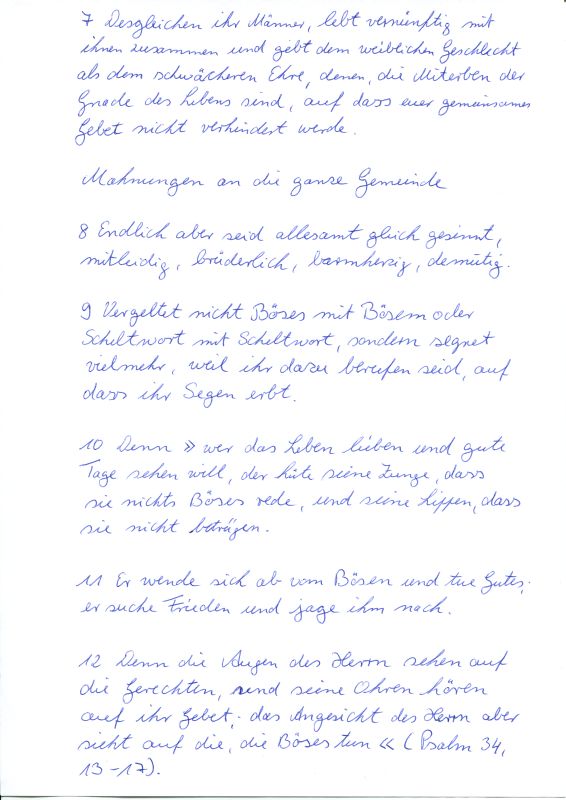 7 Desgleichen ihr Männer, lebt vernünftig mit
ihnen zusammen und gebt dem weiblichen Geschlecht
als dem schwächeren Ehre, denen, die Miterben der
Gnade des Lebens sind, auf dass euer gemeinsames
Gebet nicht verhindert werde.
Mahnungen an die ganze Gemeinde
8 Endlich aber seid allesamt gleich gesinnt,
mitleidig, brüderlich, barmherzig, demütig.
9 Vergeltet nicht Böses mit Bösem oder
Scheltwort mit Scheltwort, sondern segnet
vielmehr, weil ihr dazu berufen seid, auf
dass ihr Segen erbt.
10 Denn » wer das Leben lieben und gute
Tage sehen will, der hüte seine Zunge, dass
sie nichts Böses rede, und seine Lippen, dass
sie nicht betrügen.
11 Er wende sich ab vom Bösen und tue Gutes;
er suche Frieden und jage ihm nach.
12 Denn die Augen des Herrn sehen auf
die Gerechten, und seine Ohren hören
auf ihr Gebet; das Angesicht des Herrn aber
sieht auf die, die Böses tun « (Psalm 34,
13-17).